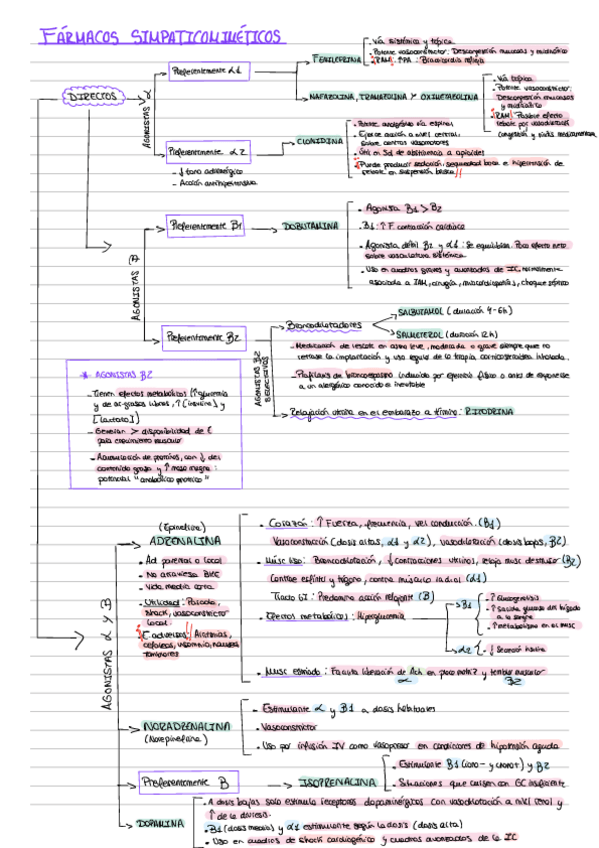 FÁRMACOS SIMPATICOMIMÉTICOS
DIRECTOS
AGONISTAS α
Preferentemente α1
FENILEFRINA
- Vía sistémica y tópica
- Potente vasoconstrictor: Descongestión mucosas y midriático
- RAM: ↑PA: Bradicardia refleja
NAFAZOLINA, TRAMAZOLINA Y OXIMETAZOLINA
- Vía tópica
- Potente vasoconstrictor: Descongestión mucosas y midriático
- RAM: Posible efecto rebote por vasodilatación
congestión y rinitis medicamentosa
Preferentemente α2
- ↓ tono adrenérgico
- Acción antihipertensiva
CLONIDINA
- Potente analgésico vía espinal
- Ejerce acción a nivel central, sobre centros vasomotores
- Útil en Sd de abstinencia a opioides
- Puede producir sedación, sequedad boca e hipertensión de rebote en suspensión brusca
AGONISTAS β
Preferentemente B1
DOBUTAMINA
- Agonista B1 > B2
- B1: ↑F. contracción cardíaca
- Agonista débil B2 y α1: Se equilibran. Poco efecto neto sobre vasculatura sistémica
- Uso en cuadros graves y avanzados de IC, normalmente asociada a IAM, cirugía, miocardiopatías, choque séptico
Preferentemente B2
AGONISTAS B2 SELECTIVOS
Broncodilatadores
SALBUTAMOL (duración 4-6h)
SALMETEROL (duración 12h)
- Medicación de rescate en asma leve, moderada o grave siempre que no retrase la implantación y uso regular de la terapia corticosteroidea inhalada.
- Profilaxis de broncoespasmo inducido por ejercicio físico o antes de exponerse a un alergénico conocido e inevitable
Relajación uterina en el embarazo a término: RITODRINA
* AGONISTAS B2
- Tienen efectos metabólicos (↑glucemia y de ac. grasos libres, ↑[insulina] y [lactato])
- Generan > disponibilidad de E para crecimiento muscular
- Acumulación de proteínas, con ↓ del contenido graso y ↑ masa magra: potencial "anabólico proteico"
AGONISTAS α y β
(Epinefrina)
ADRENALINA
- Ad parenteral o local
- No atraviesa BHE
- Vida media corta
- Utilidad: Parada, shock, vasoconstrictor local
E. adversos: Arritmias, cefaleas, insomnio, náuseas, temblores
- Corazón: ↑ Fuerza, frecuencia, vel conducción. (B1)
Vasoconstricción (dosis altas, α1 y α2), vasodilatación (dosis bajas, B2)
- Músc liso: Broncodilatación, ↓ contracciones uterinas, relaja musc detrusor (B2)
Contrae esfínter y trígono, contrae músculo radial (α1)
Tracto GI: Predomina acción relajante (B)
- Efectos metabólicos: Hiperglucemia
B1
- ↑ Glucogenolisis
- ↑ Salida glucosa del hígado a la sangre
- ↑ Metabolismo en el musc
α2
- ↓ Secreción insulina
- Musc estriado: Facilita liberación de Ach en placa motriz y temblor muscular
α
B2
NORADRENALINA
(Norepinefrina)
- Estimulante α y B1 a dosis habituales
- Vasoconstrictor
- Uso por infusión IV como vasopresor en condiciones de hipotensión aguda
Preferentemente B
ISOPRENALINA
- Estimulante B1 (iono- y cronot) y B2
- Situaciones que cursen con GC insuficiente
DOPAMINA
- A dosis bajas solo estimula receptores dopaminérgicos con vasodilatación a nivel renal y ↑ de la diuresis.
- B1 (dosis media) y α1 estimulante según la dosis (dosis alta)
- Uso en cuadros de shock cardiogénico y cuadros avanzados de la IC